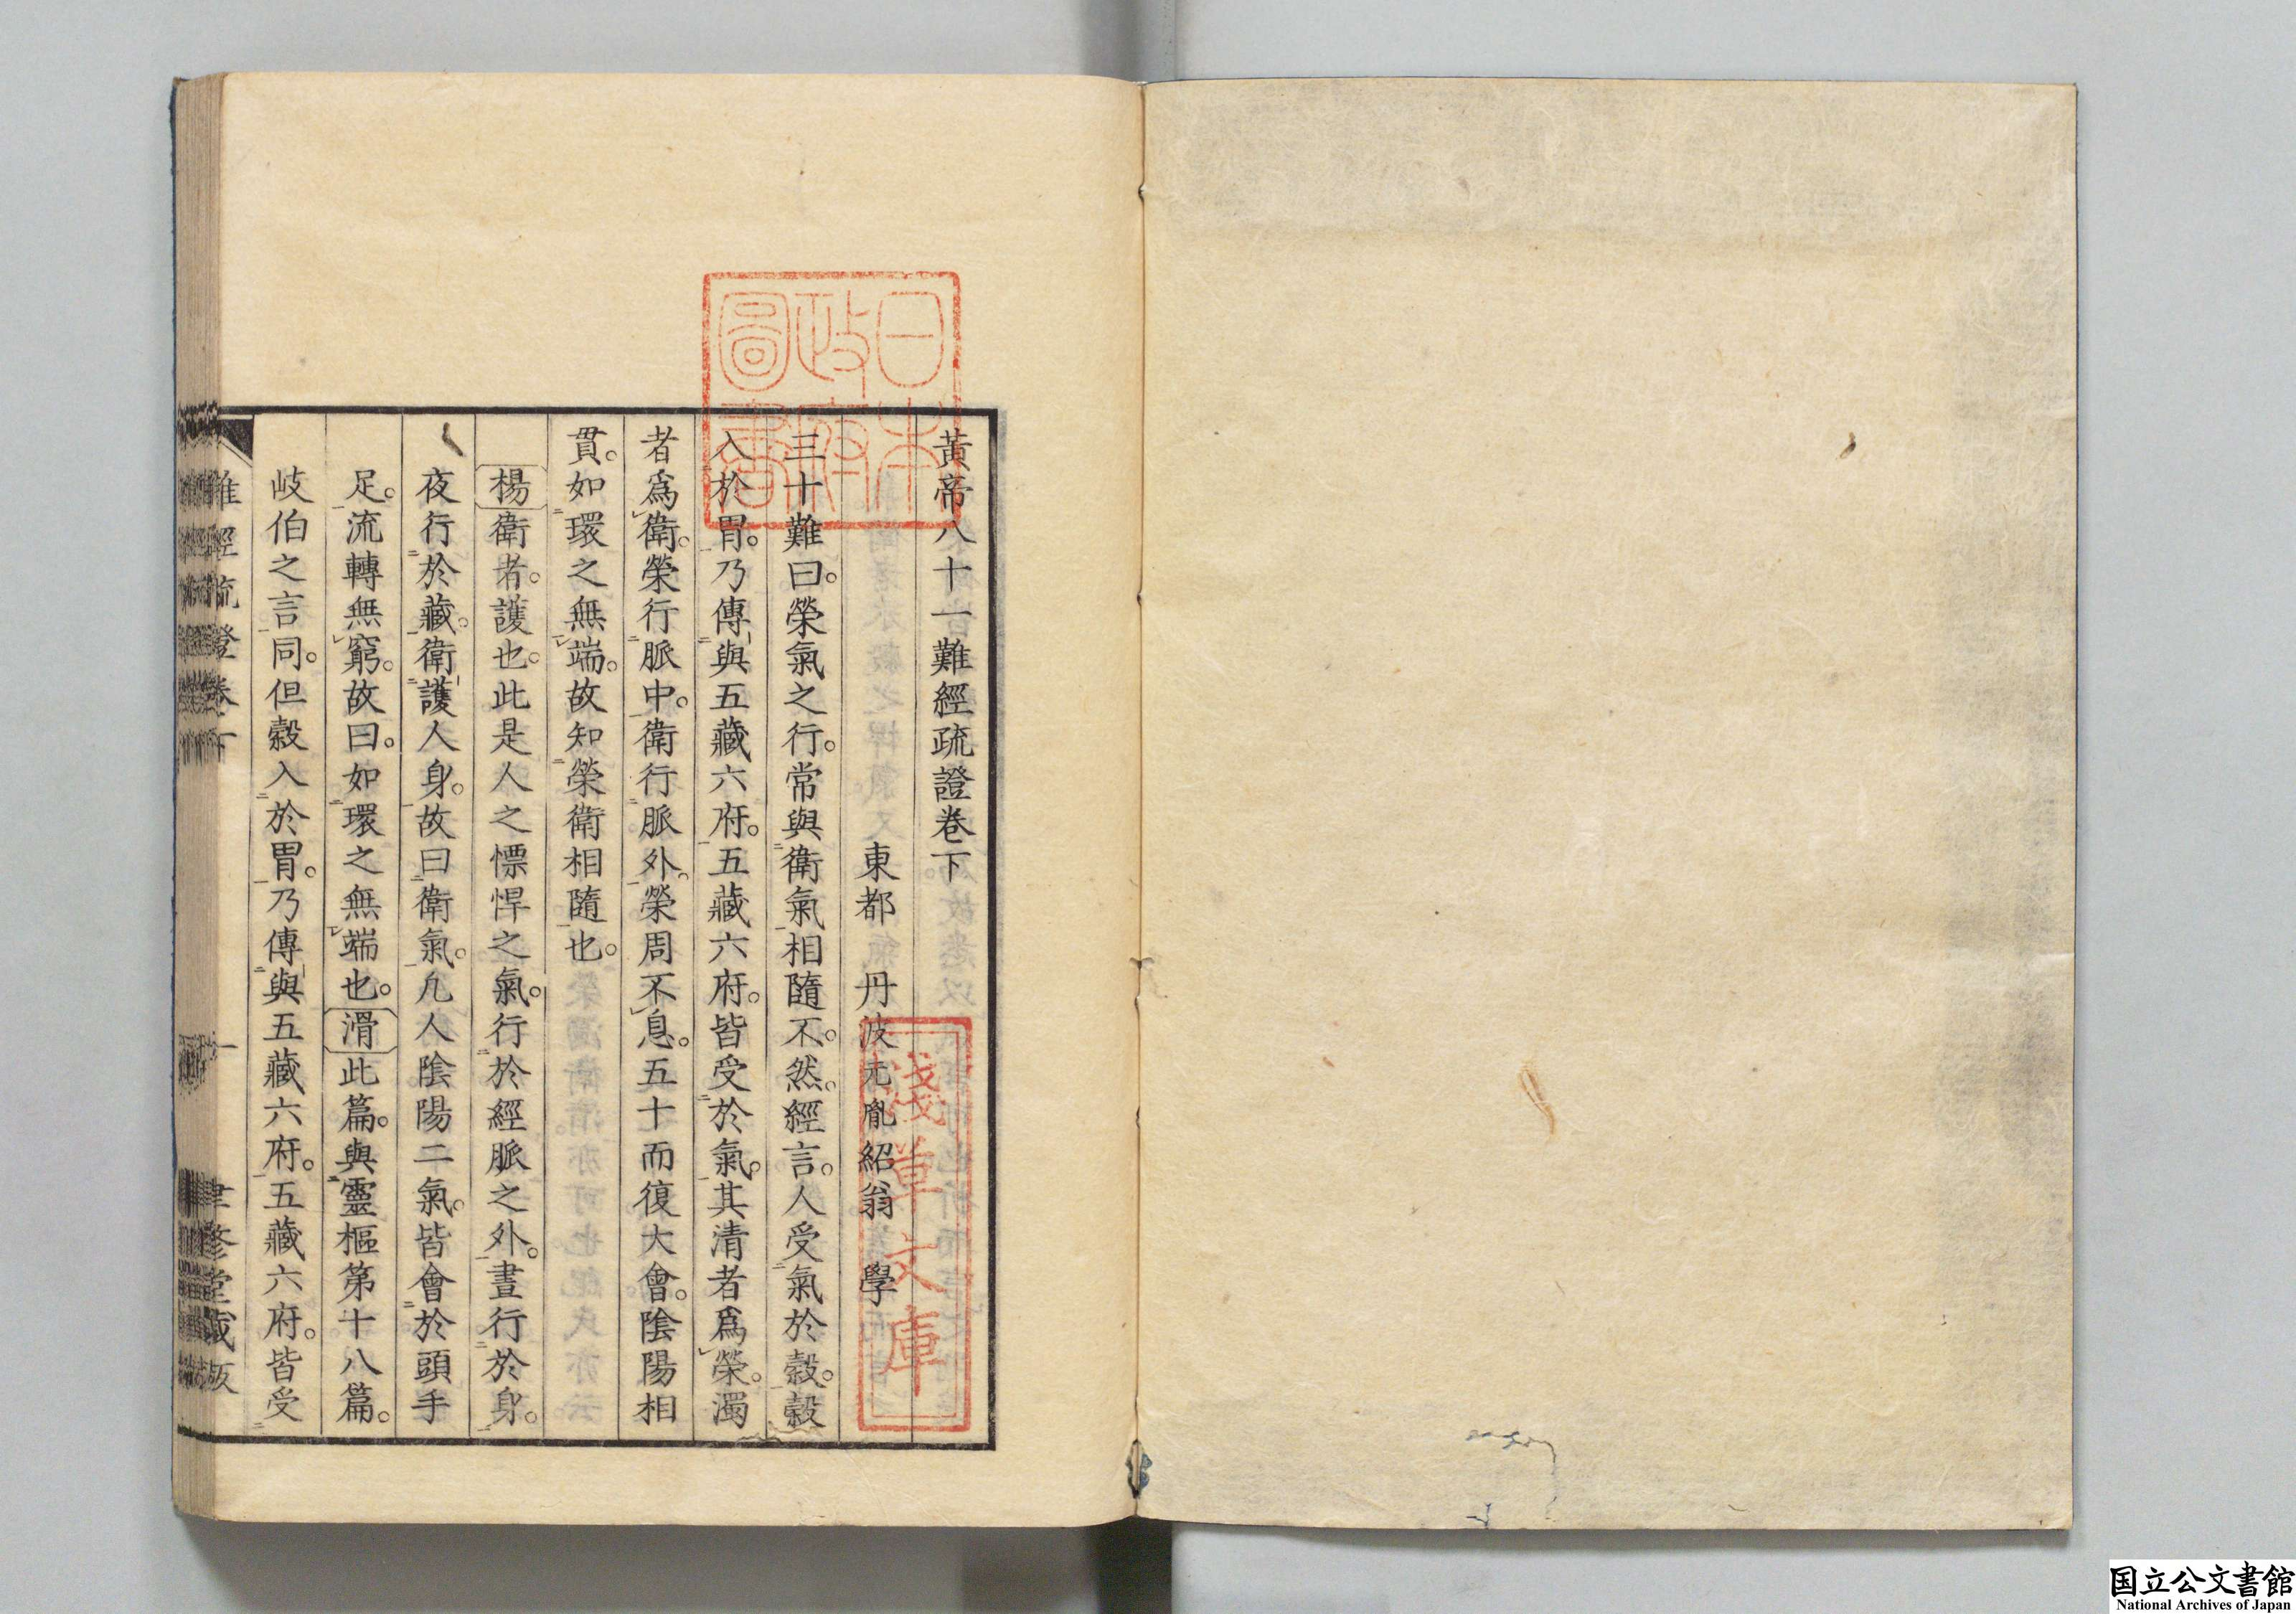 黃帝八十一難經疏證卷下
東都 丹波元胤紹翁 學
三十難曰。榮氣之行。常與衛氣相隨不。然。經言。人受氣於穀。穀
入於胃。乃傳與五藏六府。五藏六府。皆受於氣。其清者爲榮。濁
者爲衛。榮行脈中。衛行脈外。榮周不息。五十而復大會。陰陽相
貫。如環之無端。故知榮衛相隨也。
楊衛者。護也。此是人之慓悍之氣。行於經脈之外。晝行於身。
夜行於藏。衛護人身。故曰衛氣。凡人陰陽二氣。皆會於頭手
足。流轉無窮。故曰。如環之無端也。滑此篇。與靈樞第十八篇。
岐伯之言同。但穀入於胃。乃傳與五藏六府。五藏六府。皆受
難經疏證卷下 一 聿修堂藏版
日本政府圖書
淺草文庫
国立公文書館
National Archives of Japan